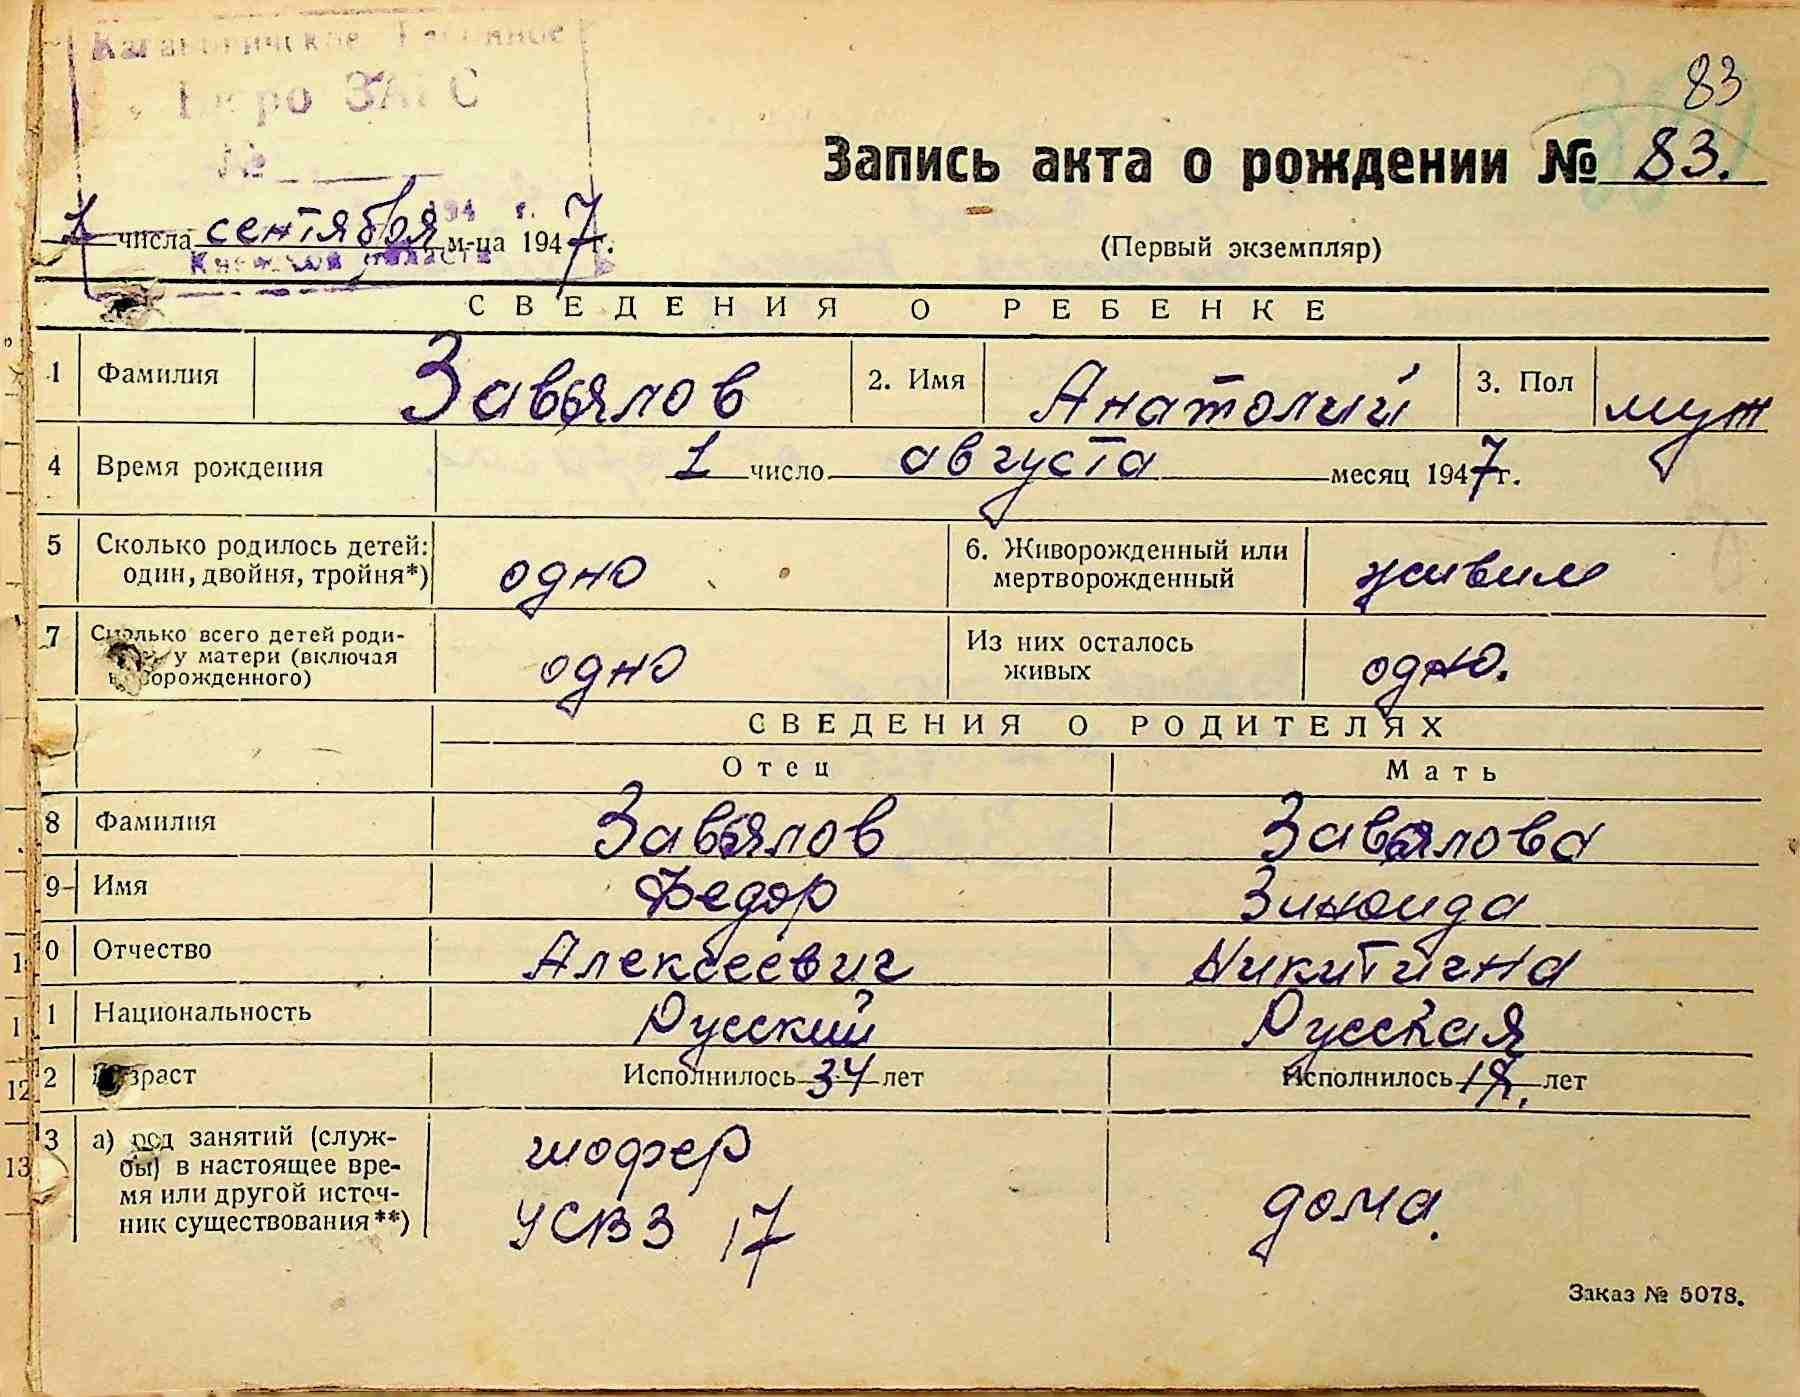 Кагановичское Районное
Бюро ЗАГС
№
83
Запись акта о рождении № 83.
194 г.
1 числа сентября м-ца 1947 г.
Киевской области
(Первый экземпляр)
СВЕДЕНИЯ О РЕБЕНКЕ
1 Фамилия Завьялов 2. Имя Анатолий 3. Пол муж
4 Время рождения 1 число августа месяц 1947 г.
5 Сколько родилось детей: одно 6. Живорожденный или живым
один, двойня, тройня*) мертворожденный
7 Сколько всего детей роди- одно Из них осталось одно.
у матери (включая живых
ворожденного)
СВЕДЕНИЯ О РОДИТЕЛЯХ
Отец Мать
8 Фамилия Завьялов Завьялова
9 Имя Федор Зинаида
10 Отчество Алексеевич Никитична
11 Национальность Русский Русская
12 Возраст Исполнилось 34 лет Исполнилось лет
13 а) род занятий (служ- шофер
бы) в настоящее вре- дома.
мя или другой источ- УСВЗ 17
ник существования**)
Заказ № 5078.